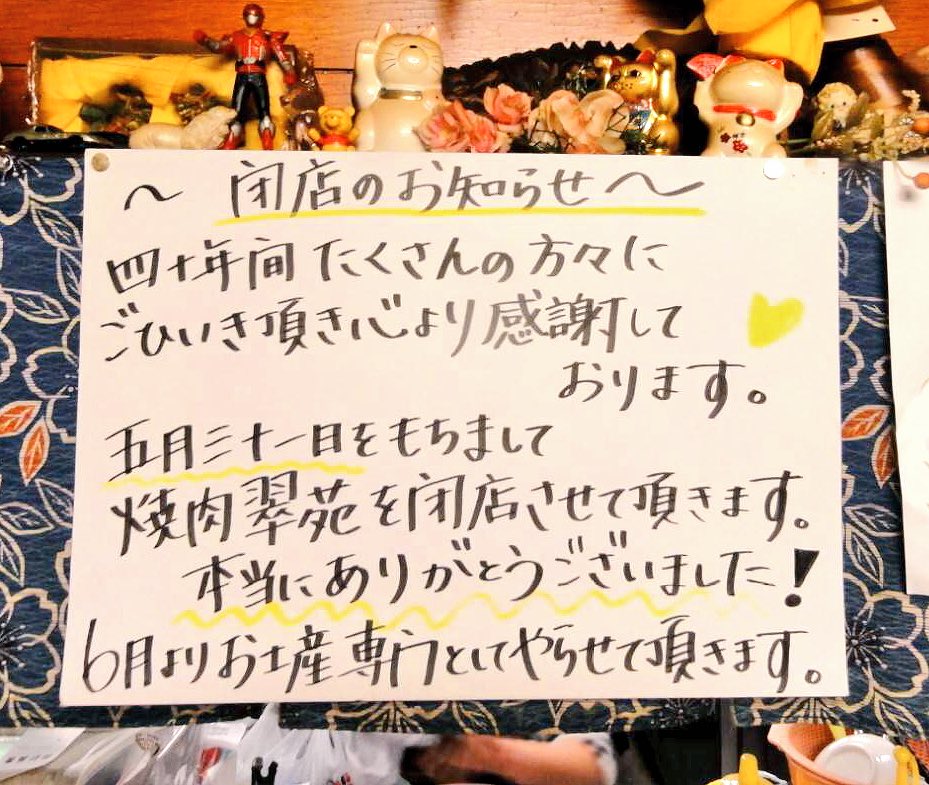 ～ 閉店のお知らせ ～
四十年間 たくさんの方々に
ごひいき頂き心より感謝して
おります。
五月三十一日をもちまして
焼肉翠苑を閉店させて頂きます。
本当にありがとうございました！
6月よりお土産専門としてやらせて頂きます。